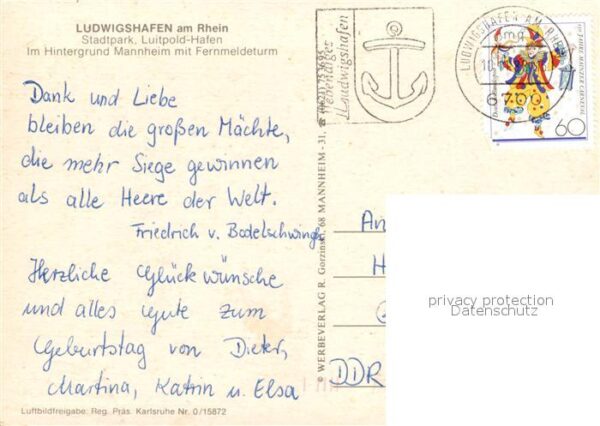 LUDWIGSHAFEN am Rhein
Stadtpark, Luitpold-Hafen
Im Hintergrund Mannheim mit Fernmeldeturm
Dank und Liebe
bleiben die großen Mächte,
die mehr Siege gewinnen
als alle Heere der Welt.
Friedrich v. Bodelschwingh
Herzliche Glückwünsche
und alles Gute zum
Geburtstag von Dieter,
Martina, Katrin u. Elsa
Luftbildfreigabe: Reg. Präs. Karlsruhe Nr. 0/15872
® WERBEVERLAG R. Gorzinski, 68 MANNHEIM - 31,
Lebendiges
Ludwigshafen
LUDWIGSHAFEN AM RHEIN
6700
150 JAHRE MAINZER CARNEVAL
60
An
H
DDR
privacy protection
Datenschutz